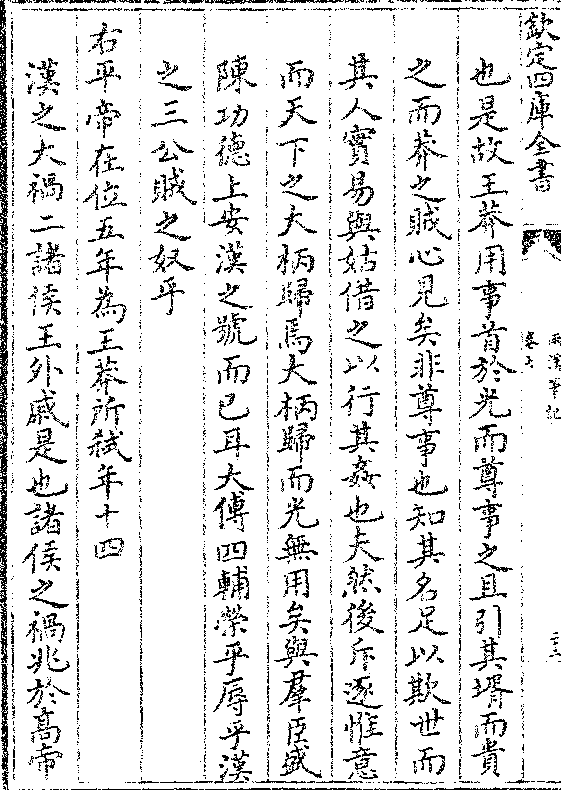 欽定四庫全書
兩漢筆記
卷七
二十三
也是故王莽用事首於光而尊事之且引其壻而貴
之而莽之賊心見矣非尊事也知其名足以欺世而
其人實易與姑借之以行其姦也夫然後斥逐惟意
而天下之大柄歸焉大柄歸而光無用矣與羣臣盛
陳功德上安漢之號而已耳大傅四輔榮乎辱乎漢
之三公賊之奴乎
右平帝在位五年為王莽所弑年十四
漢之大禍二諸侯王外戚是也諸侯之禍兆於髙帝